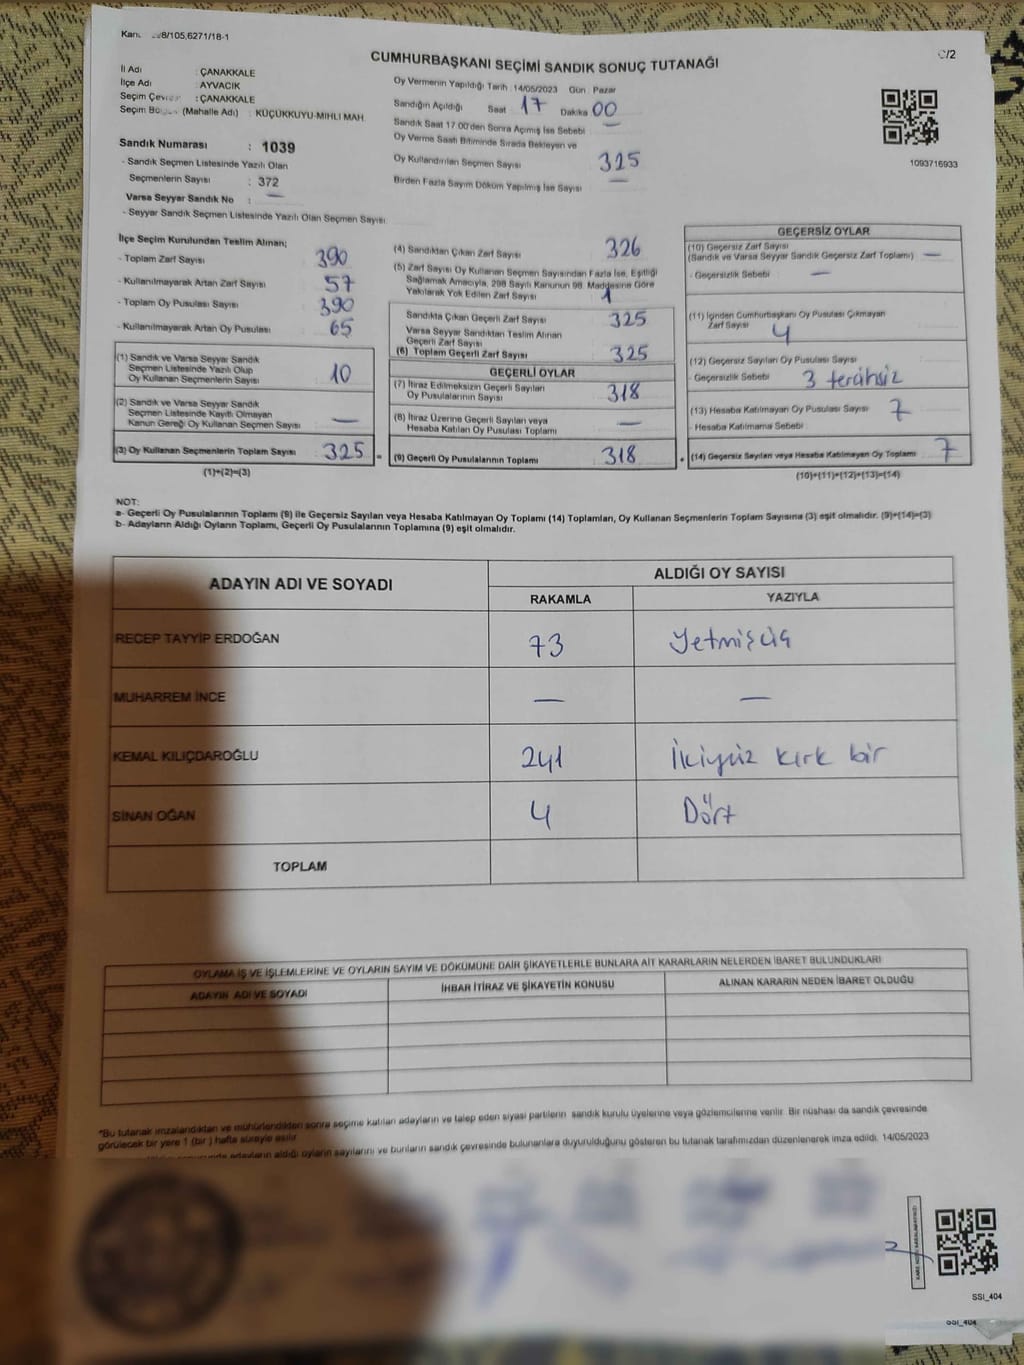 8/105,6271/18-1
/2
CUMHURBAŞKANI SEÇİMİ SANDIK SONUÇ TUTANAĞI
İl Adı : ÇANAKKALE
İlçe Adı : AYVACIK
Seçim Çevresi : ÇANAKKALE
Seçim Bölgesi (Mahalle Adı) : KÜÇÜKKUYU-MIHLI MAH.
Sandık Numarası : 1039
- Sandık Seçmen Listesinde Yazılı Olan
Seçmenlerin Sayısı : 372
Varsa Seyyar Sandık No : —
- Seyyar Sandık Seçmen Listesinde Yazılı Olan Seçmen Sayısı
Oy Vermenin Yapıldığı Tarih : 14/05/2023 Gün : Pazar
Sandığın Açıldığı Saat 17 Dakika 00
Sandık Saat 17:00'den Sonra Açılmış İse Sebebi —
Oy Verme Saati Bitiminde Sırada Bekleyen ve
Oy Kullandırılan Seçmen Sayısı 325
Birden Fazla Sayım Döküm Yapılmış İse Sayısı —
1093716933
İlçe Seçim Kurulundan Teslim Alınan;
- Toplam Zarf Sayısı 390
- Kullanılmayarak Artan Zarf Sayısı 57
- Toplam Oy Pusulası Sayısı 390
- Kullanılmayarak Artan Oy Pusulası 65
(1) Sandık ve Varsa Seyyar Sandık
Seçmen Listesinde Yazılı Olup
Oy Kullanan Seçmenlerin Sayısı 10
(2) Sandık ve Varsa Seyyar Sandık
Seçmen Listesinde Kayıtlı Olmayan
Kanun Gereği Oy Kullanan Seçmen Sayısı —
(3) Oy Kullanan Seçmenlerin Toplam Sayısı 325 =
(1)+(2)=(3)
(4) Sandıktan Çıkan Zarf Sayısı 326
(5) Zarf Sayısı Oy Kullanan Seçmen Sayısından Fazla İse, Eşitliği
Sağlamak Amacıyla, 298 Sayılı Kanunun 98. Maddesine Göre
Yakılarak Yok Edilen Zarf Sayısı 1
Sandıkta Çıkan Geçerli Zarf Sayısı 325
Varsa Seyyar Sandıktan Teslim Alınan
Geçerli Zarf Sayısı
(6) Toplam Geçerli Zarf Sayısı 325
GEÇERLİ OYLAR
(7) İtiraz Edilmeksizin Geçerli Sayılan
Oy Pusulalarının Sayısı 318
(8) İtiraz Üzerine Geçerli Sayılan veya
Hesaba Katılan Oy Pusulası Toplamı —
(9) Geçerli Oy Pusulalarının Toplamı 318 +
GEÇERSİZ OYLAR
(10) Geçersiz Zarf Sayısı
(Sandık ve Varsa Seyyar Sandık Geçersiz Zarf Toplamı) —
- Geçersizlik Sebebi —
(11) İçinden Cumhurbaşkanı Oy Pusulası Çıkmayan
Zarf Sayısı 4
(12) Geçersiz Sayılan Oy Pusulası Sayısı
- Geçersizlik Sebebi 3 tercihsiz
(13) Hesaba Katılmayan Oy Pusulası Sayısı 7
- Hesaba Katılmama Sebebi
(14) Geçersiz Sayılan veya Hesaba Katılmayan Oy Toplamı 7
(10)+(11)+(12)+(13)=(14)
NOT:
a- Geçerli Oy Pusulalarının Toplamı (9) ile Geçersiz Sayılan veya Hesaba Katılmayan Oy Toplamı (14) Toplamları, Oy Kullanan Seçmenlerin Toplam Sayısına (3) eşit olmalıdır. (9)+(14)=(3)
b- Adayların Aldığı Oyların Toplamı, Geçerli Oy Pusulalarının Toplamına (9) eşit olmalıdır.
ADAYIN ADI VE SOYADI
ALDIĞI OY SAYISI
RAKAMLA YAZIYLA
RECEP TAYYİP ERDOĞAN 73 Yetmişüç
MUHARREM İNCE — —
KEMAL KILIÇDAROĞLU 241 İkiyüz kırk bir
SİNAN OĞAN 4 Dört
TOPLAM
OYLAMA İŞ VE İŞLEMLERİNE VE OYLARIN SAYIM VE DÖKÜMÜNE DAİR ŞİKAYETLERLE BUNLARA AİT KARARLARIN NELERDEN İBARET BULUNDUKLARI
ADAYIN ADI VE SOYADI İHBAR İTİRAZ VE ŞİKAYETİN KONUSU ALINAN KARARIN NEDEN İBARET OLDUĞU
*Bu tutanak imzalandıktan ve mühürlendikten sonra seçime katılan adayların ve talep eden siyasi partilerin sandık kurulu üyelerine veya gözlemcilerine verilir. Bir nüshası da sandık çevresinde
görülecek bir yere 1 (bir) hafta süreyle asılır.
adayların aldığı oyların sayılarını ve bunların sandık çevresinde bulunanlara duyurulduğunu gösteren bu tutanak tarafımızdan düzenlenerek imza edildi. 14/05/2023
SSI_404
SSI_404